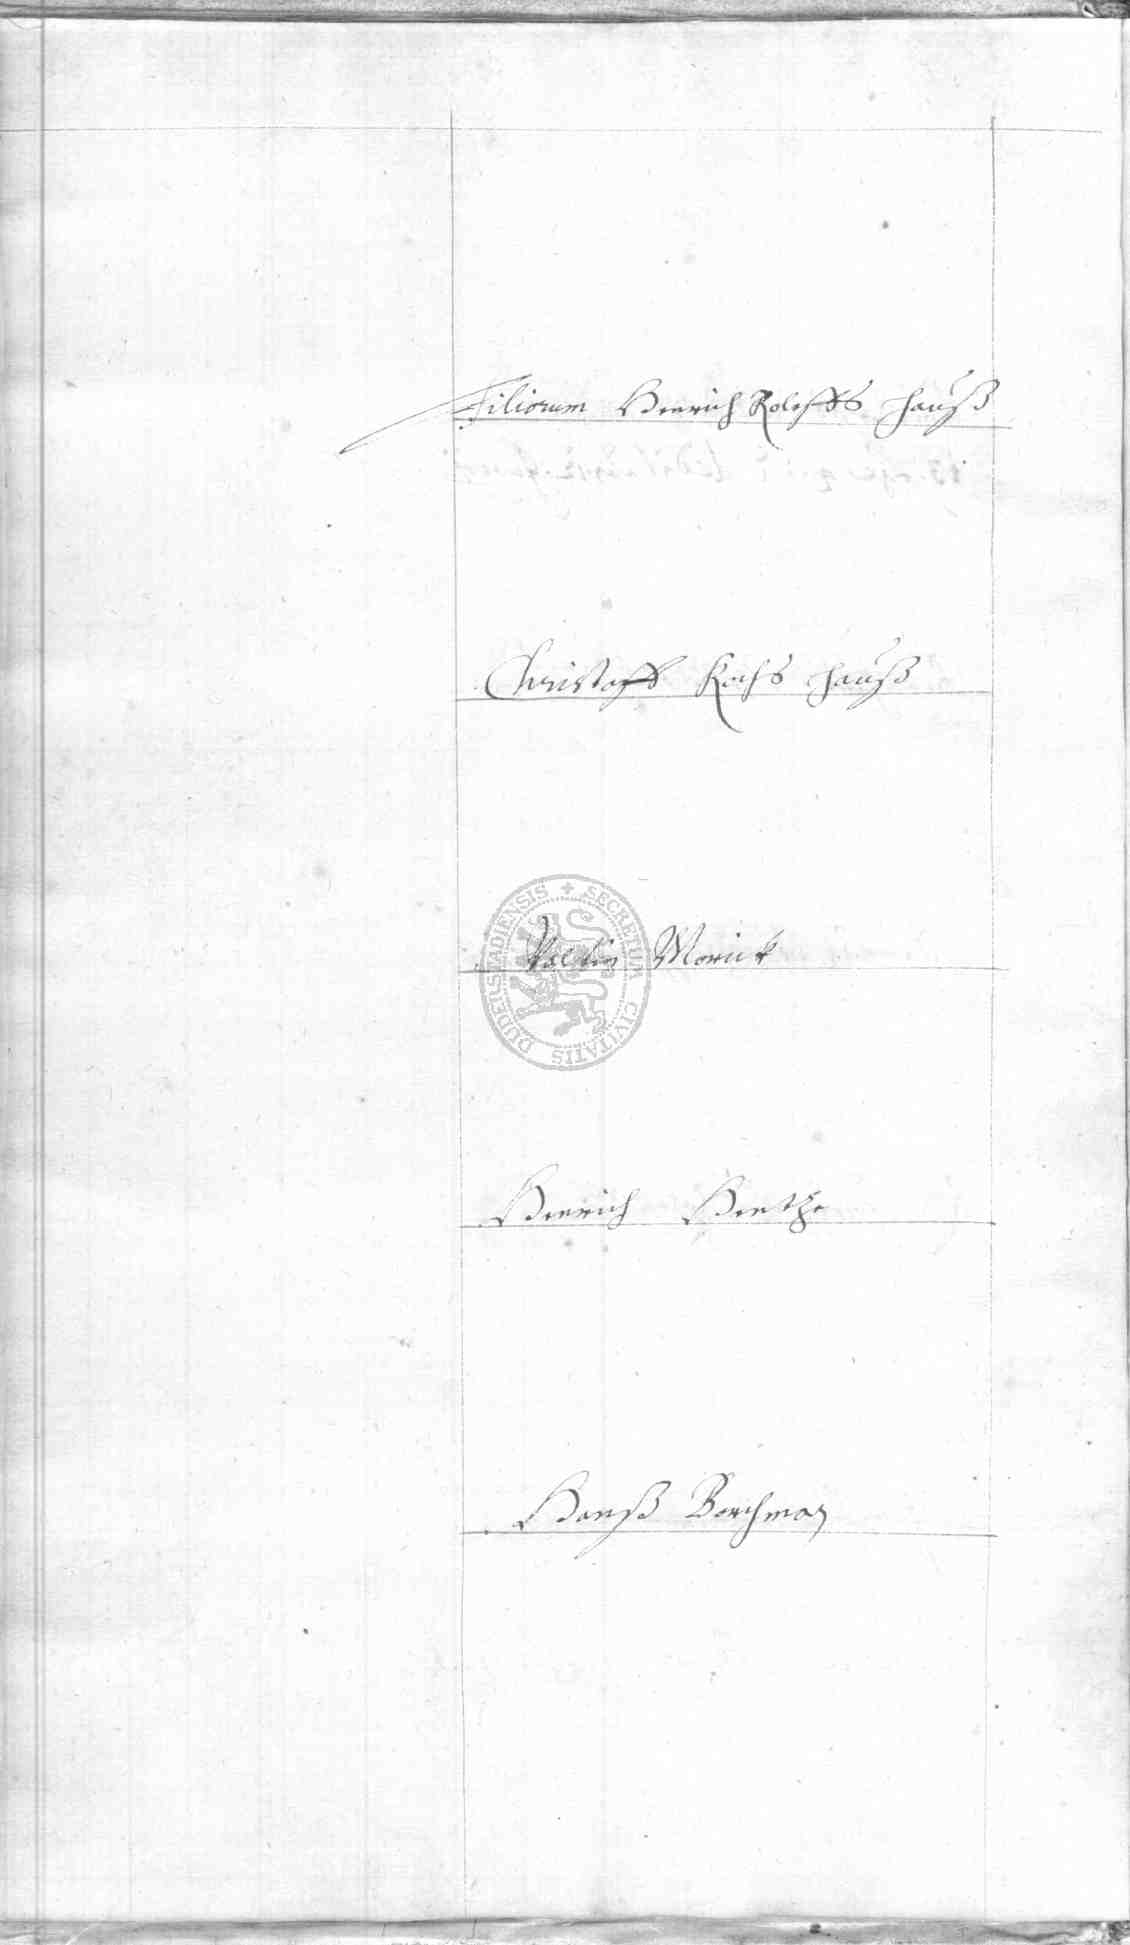 Filiorum Henrich Roleffs hauß
Christoff Kochs hauß
SECRETUM CIVITATIS DUDERSTADIENSIS
Valtin Morick
Henrich Henthe
Hanß Borchman